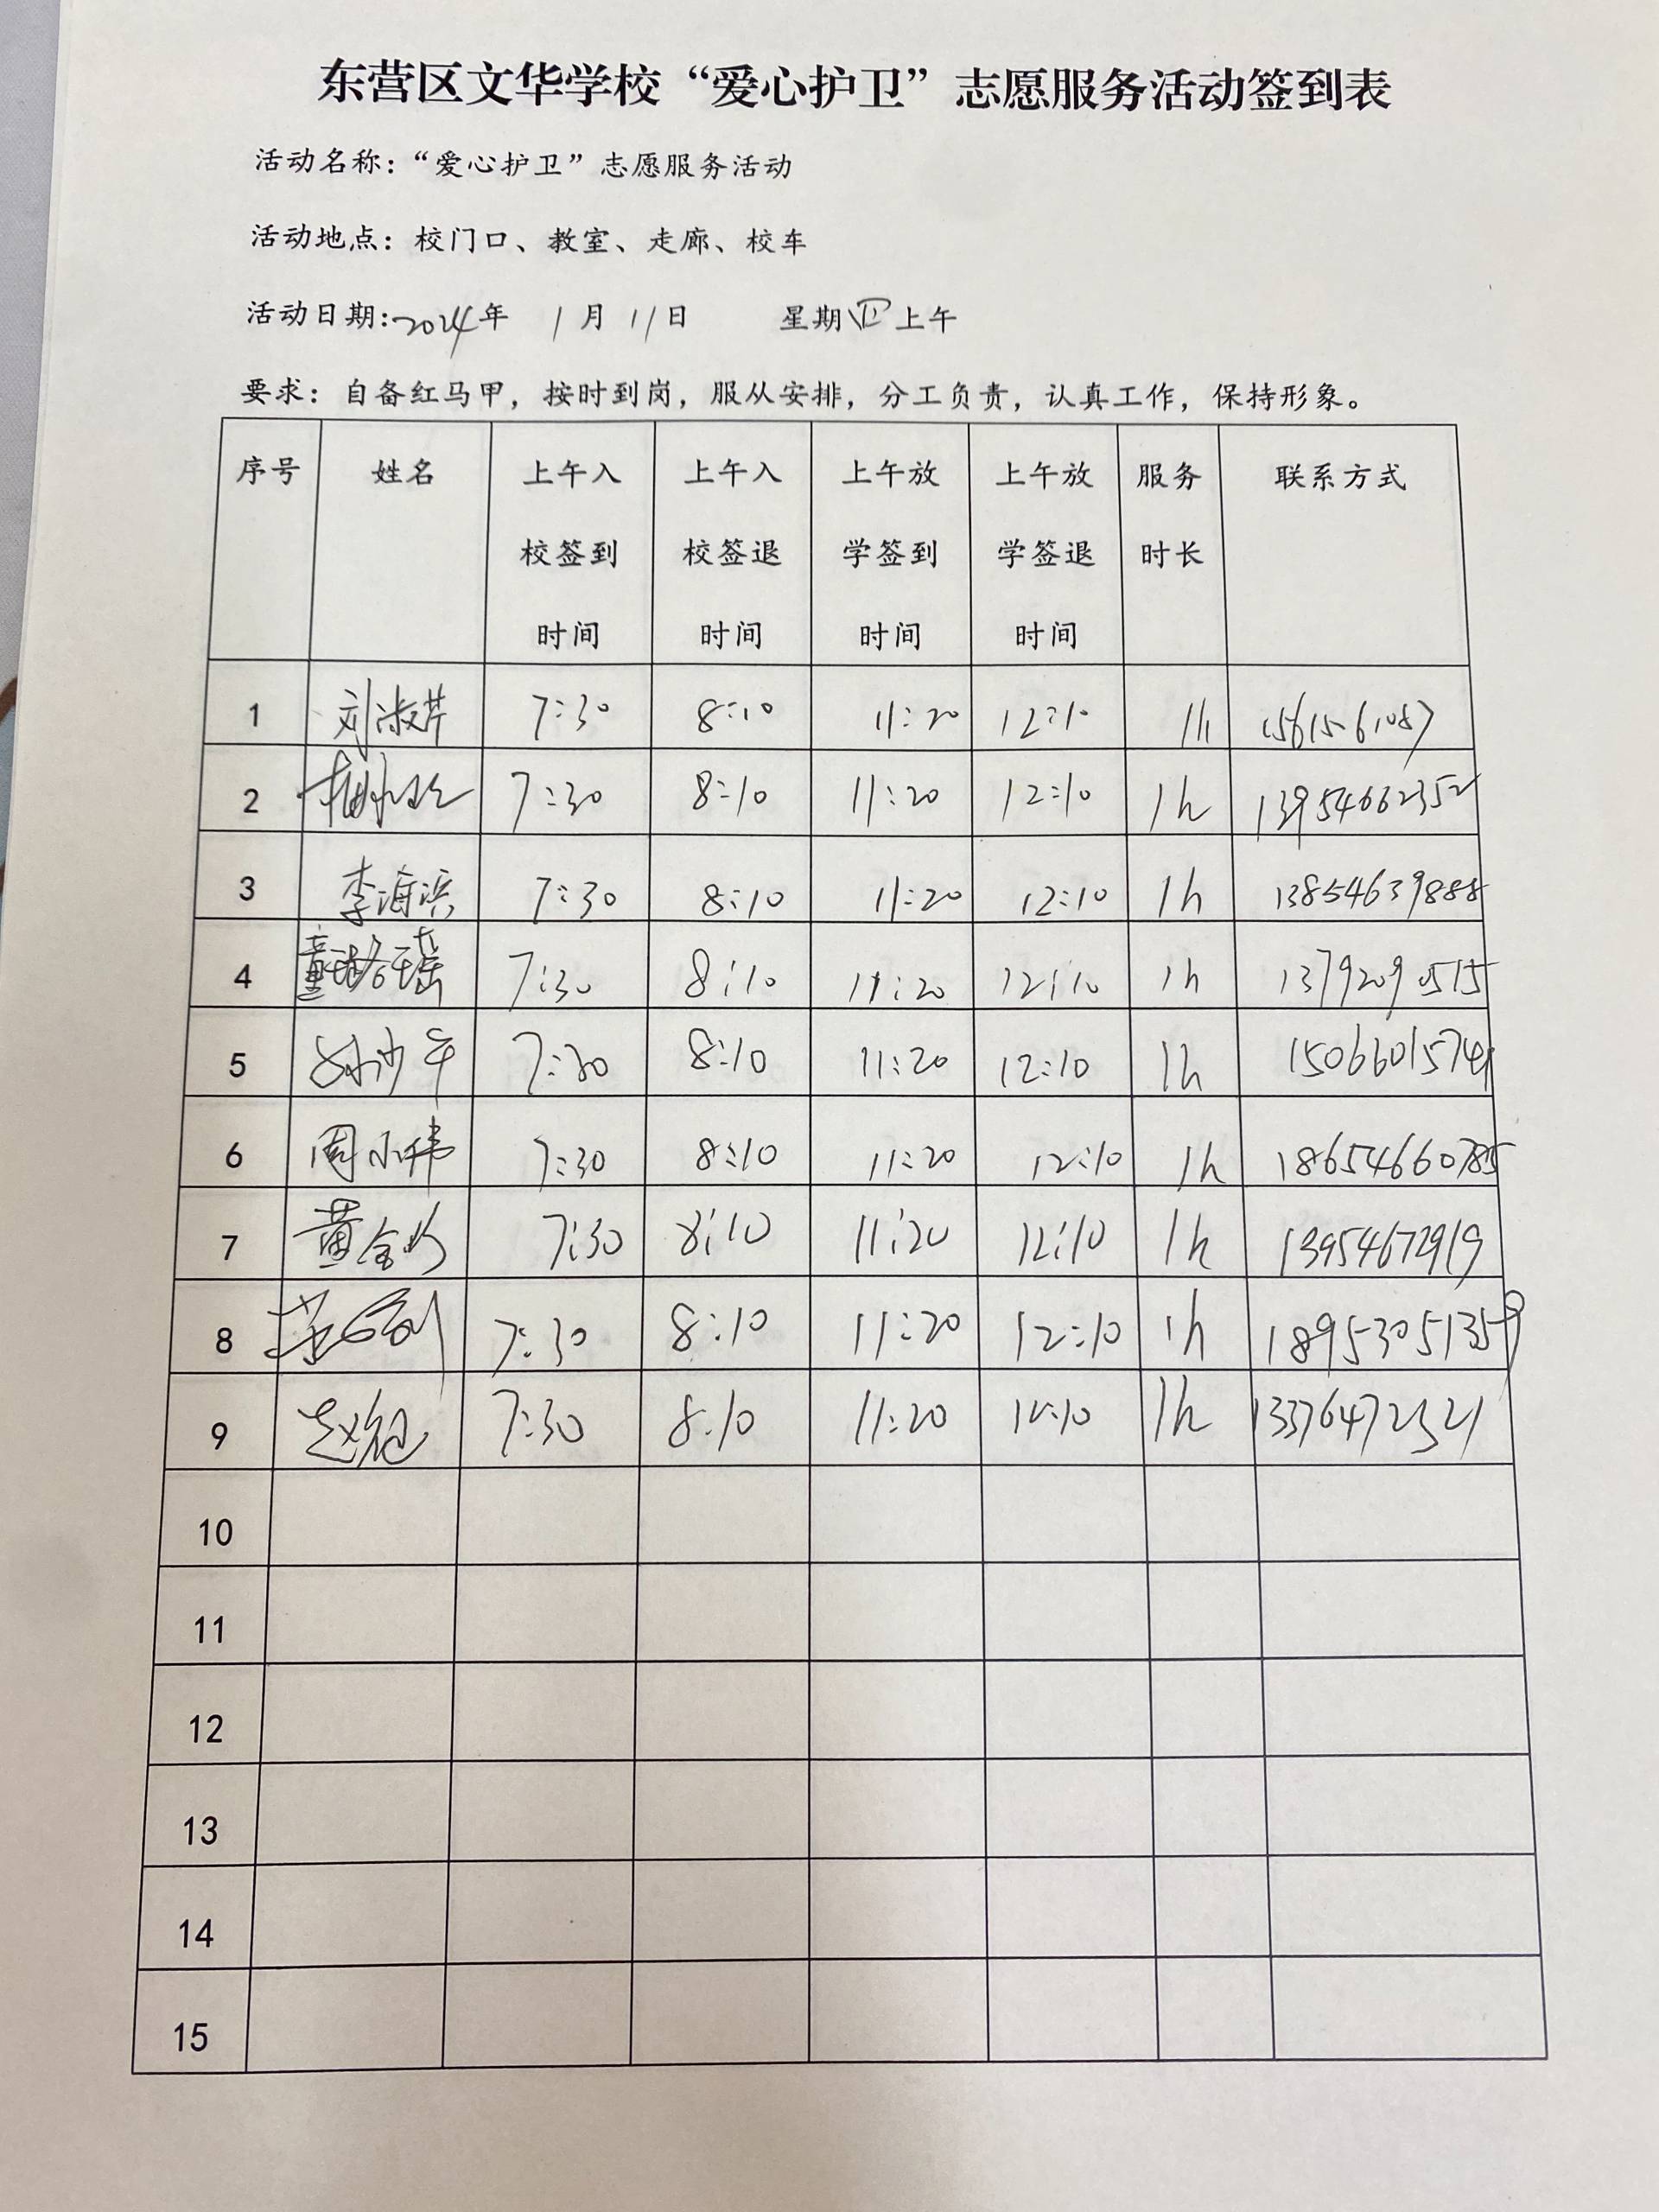 东营区文华学校“爱心护卫”志愿服务活动签到表
活动名称：“爱心护卫”志愿服务活动
活动地点：校门口、教室、走廊、校车
活动日期：2024年 1月11日 星期四上午
要求：自备红马甲，按时到岗，服从安排，分工负责，认真工作，保持形象。
序号 姓名 上午入校签到时间 上午入校签退时间 上午放学签到时间 上午放学签退时间 服务时长 联系方式
1 刘淑芹 7:30 8:10 11:20 12:10 1h 1561561087
2 7:30 8:10 11:20 12:10 1h 13954662352
3 李海滨 7:30 8:10 11:20 12:10 1h 13854639888
4 董珞瑶 7:30 8:10 11:20 12:10 1h 13792090515
5 7:30 8:10 11:20 12:10 1h 15066015741
6 周小伟 7:30 8:10 11:20 12:10 1h 18654660785
7 黄金 7:30 8:10 11:20 12:10 1h 13954672919
8 7:30 8:10 11:20 12:10 1h 18953051359
9 7:30 8:10 11:20 12:10 1h 13376472521
10
11
12
13
14
15